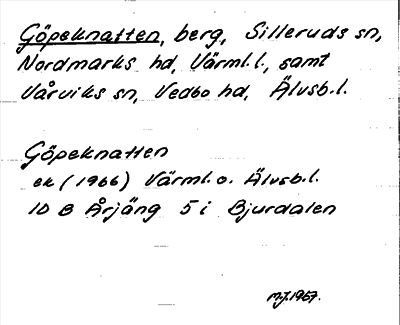 Göpeknatten, berg, Silleruds sn,
Nordmarks hd, Värml.l., samt
Vårviks sn, Vedbo hd, Älvsb.l.
Göpeknatten
ek (1966) Värml. o. Älvsb.l.
10 B Årjäng 5 i Bjurdalen
M.J.1967.